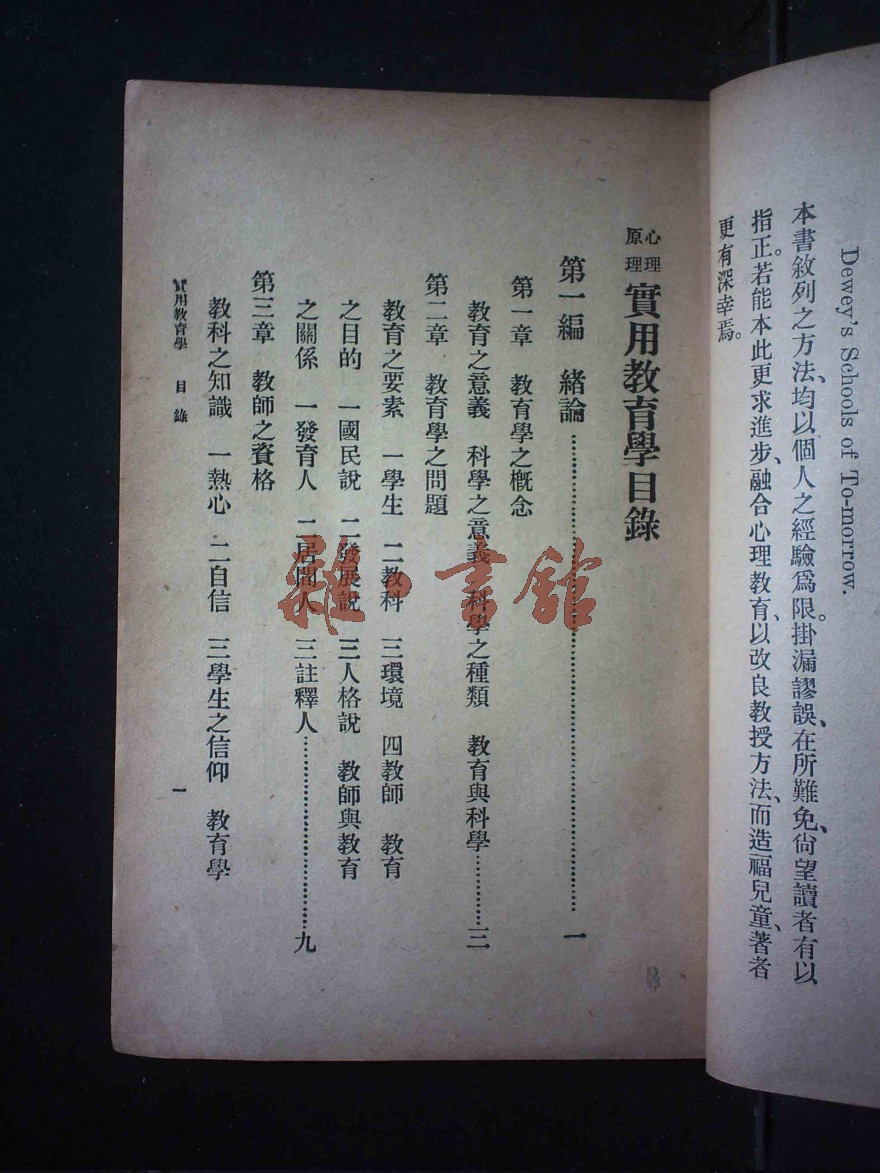 Dewey's Schools of To-morrow.
本書敘列之方法、均以個人之經驗爲限。掛漏謬誤、在所難免、尙望讀者有以
指正。若能本此更求進步、融合心理教育、以改良教授方法、而造福兒童、著者
更有深幸焉。
心理原理 實用教育學目錄
第一編 緒論……………………………一
第一章 教育學之概念
教育之意義 科學之意義 科學之種類 教育與科學…………三
第二章 教育學之問題
教育之要素 一學生 二教科 三環境 四教師 教育
之目的 一國民說 二發展說 三人格說 教師與教育
之關係 一發育人 二居間人 三註釋人……………………九
第三章 教師之資格
教科之知識 一熱心 二自信 三學生之信仰 教育學
實用教育學 目錄
一
雜書館